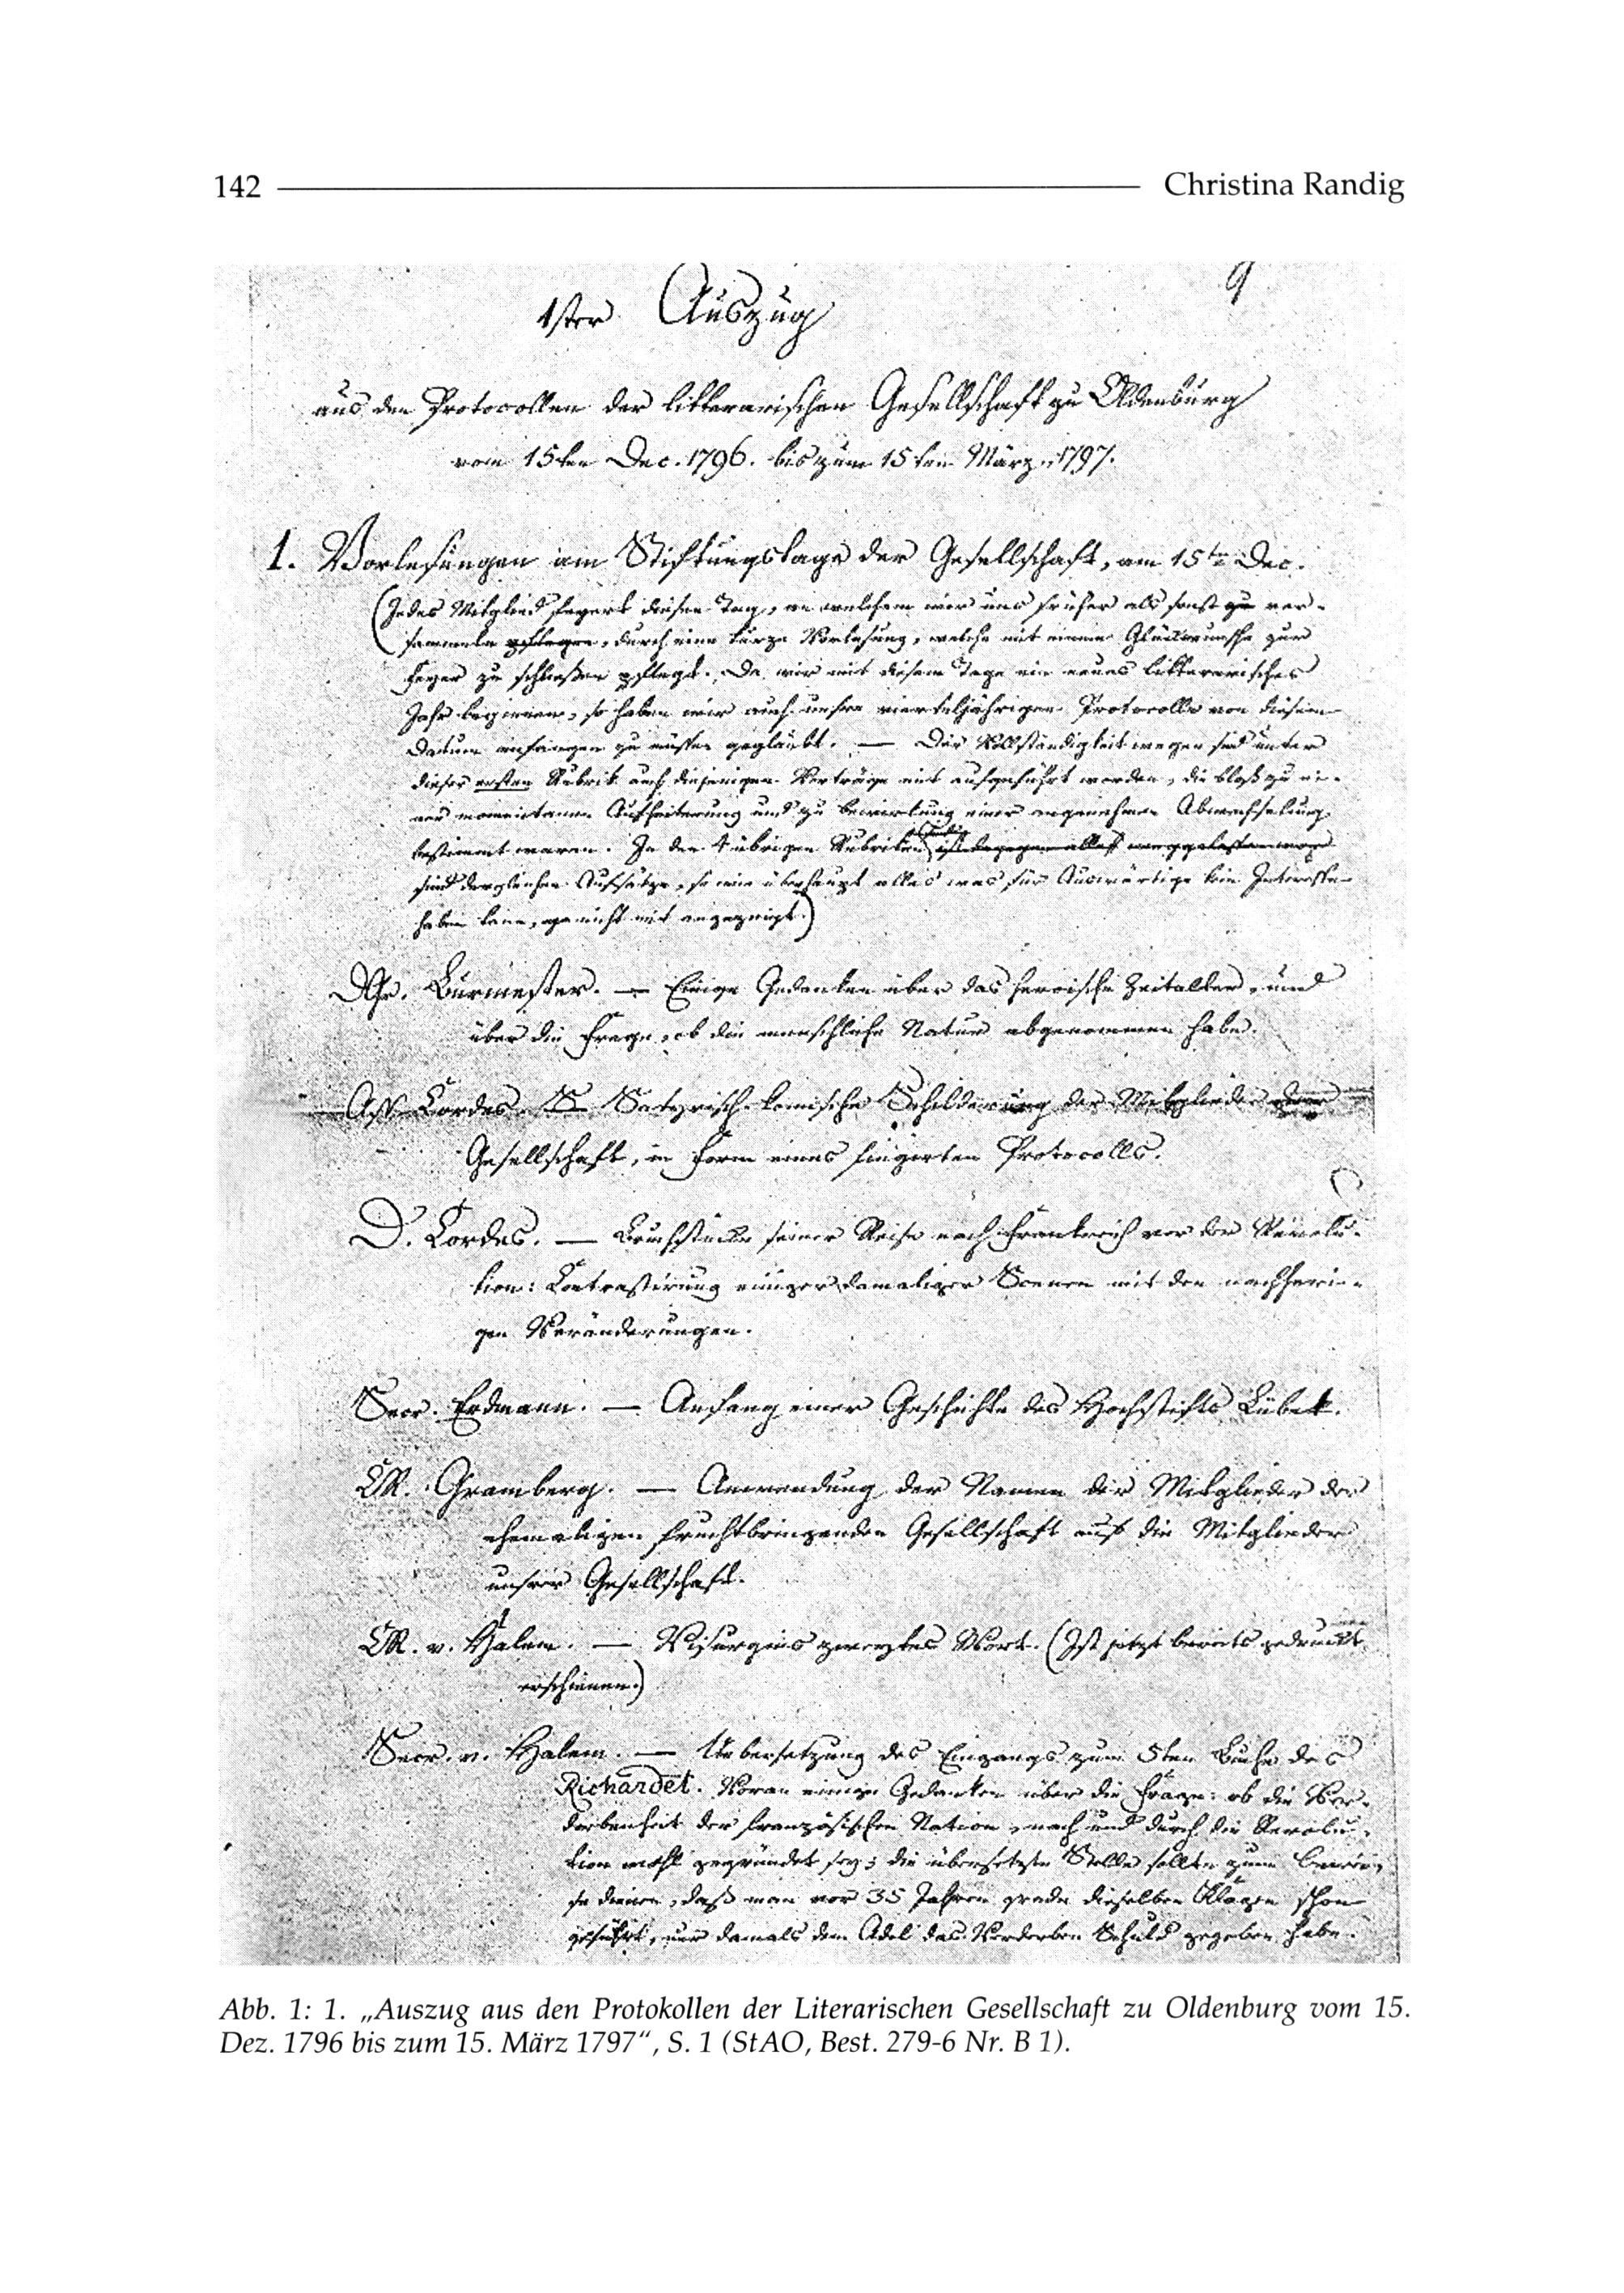 142 Christina Randig
9
1ster Auszug
aus den Protocollen der litterarischen Gesellschaft zu Oldenburg
vom 15ten Dec. 1796. bis zum 15ten März 1797.
1. Vorlesungen am Stiftungstage der Gesellschaft, am 15ten Dec.
(Jedes Mitglied feyert diesen Tag, an welchem wir uns früher als sonst zu ver-
sammeln pflegen, durch eine kurze Vorlesung, welche mit einem Glückwunsche zur
Feyer zu schließen pflegt. Da wir mit diesem Tage ein neues litterarisches
Jahr beginnen, so haben wir auch unsre vierteljährigen Protocolle von diesem
Datum anfangen zu müssen geglaubt. — Der Vollständigkeit wegen sind unter
dieser ersten Rubrik auch diejenigen Vorträge mit aufgeführt worden, die bloß zu ei-
ner momentanen Aufheiterung und zu Bewirkung einer angenehmen Abwechselung
bestimmt waren. In den 4 übrigen Rubriken ist dagegen alles weggelassen
sind dergleichen Aufsätze, so wie überhaupt alles was für Auswärtige kein Interesse
haben kann, gar nicht mit angezeigt.)
Burmester. — Einige Gedanken über das heroische Zeitalter, und
über die Frage, ob die menschliche Natur abgenommen habe.
Ass. Cordes. Satyrisch-komische Schilderung der Mitglieder der
Gesellschaft, in Form eines fingirten Protocolls.
D. Cordes. — Bruchstücke seiner Reise nach Frankreich vor der Revolu-
tion: Contrastirung einiger damaliger Scenen mit den nachheri-
gen Veränderungen.
Secr. Erdmann. — Anfang einer Geschichte des Hochstifts Lübek.
CR. Gramberg. — Anwendung der Namen der Mitglieder der
ehemaligen fruchtbringenden Gesellschaft auf die Mitglieder
unsrer Gesellschaft.
CR. v. Halem. — Visurgins zweytes Wort. (Ist jetzt bereits gedruckt
erschienen.)
Secr. v. Halem. — Uebersetzung des Eingangs zum 5ten Buche des
Richardet. Voran einige Gedanken über die Frage: ob die Ver-
dorbenheit der französischen Nation, nach und durch die Revolu-
tion wohl gegründet sey; die übersetzte Stelle sollte zum Bewei-
se dienen, daß man vor 35 Jahren grade dieselben Klagen schon
geführt, nur damals dem Adel das Verderben Schuld gegeben habe.
Abb. 1: 1. „Auszug aus den Protokollen der Literarischen Gesellschaft zu Oldenburg vom 15.
Dez. 1796 bis zum 15. März 1797“, S. 1 (StAO, Best. 279-6 Nr. B 1).